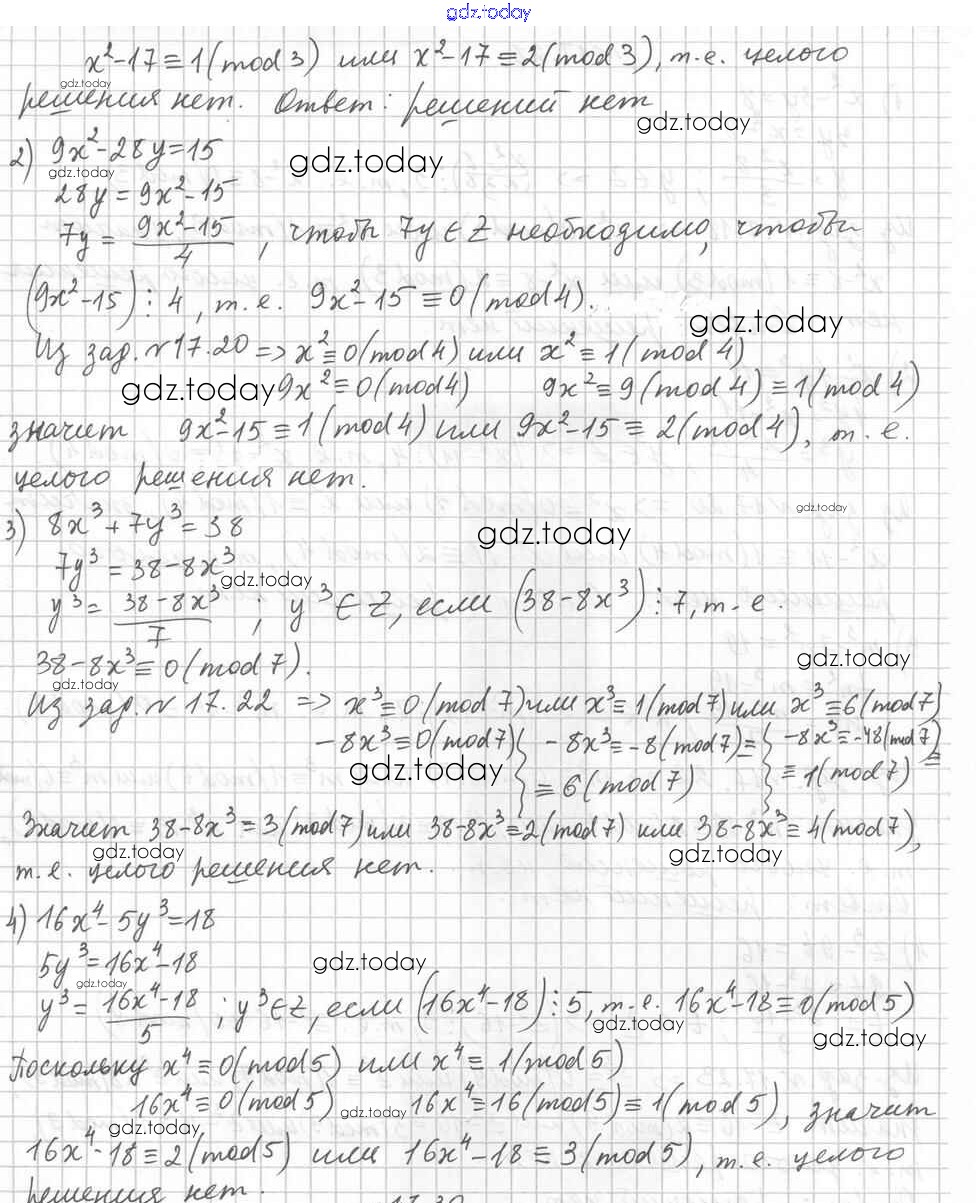 gdz.today
x²-17≡1(mod 3) или x²-17≡2(mod 3), т.е. целого
gdz.today
решения нет. Ответ: решений нет
gdz.today
2) 9x²-28y=15
gdz.today
gdz.today
28y=9x²-15
7y=(9x²-15)/4, чтобы 7y∈Z необходимо, чтобы
(9x²-15)⋮4, т.е. 9x²-15≡0(mod 4).
gdz.today
Из зад. №17.20 => x²≡0(mod 4) или x²≡1(mod 4)
gdz.today 9x²≡0(mod 4) 9x²≡9(mod 4)≡1(mod 4)
значит 9x²-15≡1(mod 4) или 9x²-15≡2(mod 4), т.е.
целого решения нет.
gdz.today
3) 8x³+7y³=38
gdz.today
7y³=38-8x³
gdz.today
y³=(38-8x³)/7; y³∈Z, если (38-8x³)⋮7, т.е.
38-8x³≡0(mod 7).
gdz.today
gdz.today
Из зад. №17.22 => x³≡0(mod 7) или x³≡1(mod 7) или x³≡6(mod 7)
-8x³≡0(mod 7) } -8x³≡-8(mod 7)= } -8x³≡-48(mod 7)≡
gdz.today
≡6(mod 7) ≡1(mod 7)
Значит 38-8x³=3(mod 7) или 38-8x³≡2(mod 7) или 38-8x³≡4(mod 7),
gdz.today
gdz.today
т.е. целого решения нет.
4) 16x⁴-5y³=18
5y³=16x⁴-18
gdz.today
gdz.today
y³=(16x⁴-18)/5; y³∈Z, если (16x⁴-18)⋮5, т.е. 16x⁴-18≡0(mod 5)
gdz.today
gdz.today
Поскольку x⁴≡0(mod 5) или x⁴≡1(mod 5)
16x⁴≡0(mod 5) gdz.today 16x⁴≡16(mod 5)≡1(mod 5), значит
gdz.today
16x⁴-18≡2(mod 5) или 16x⁴-18≡3(mod 5), т.е. целого
решения нет.